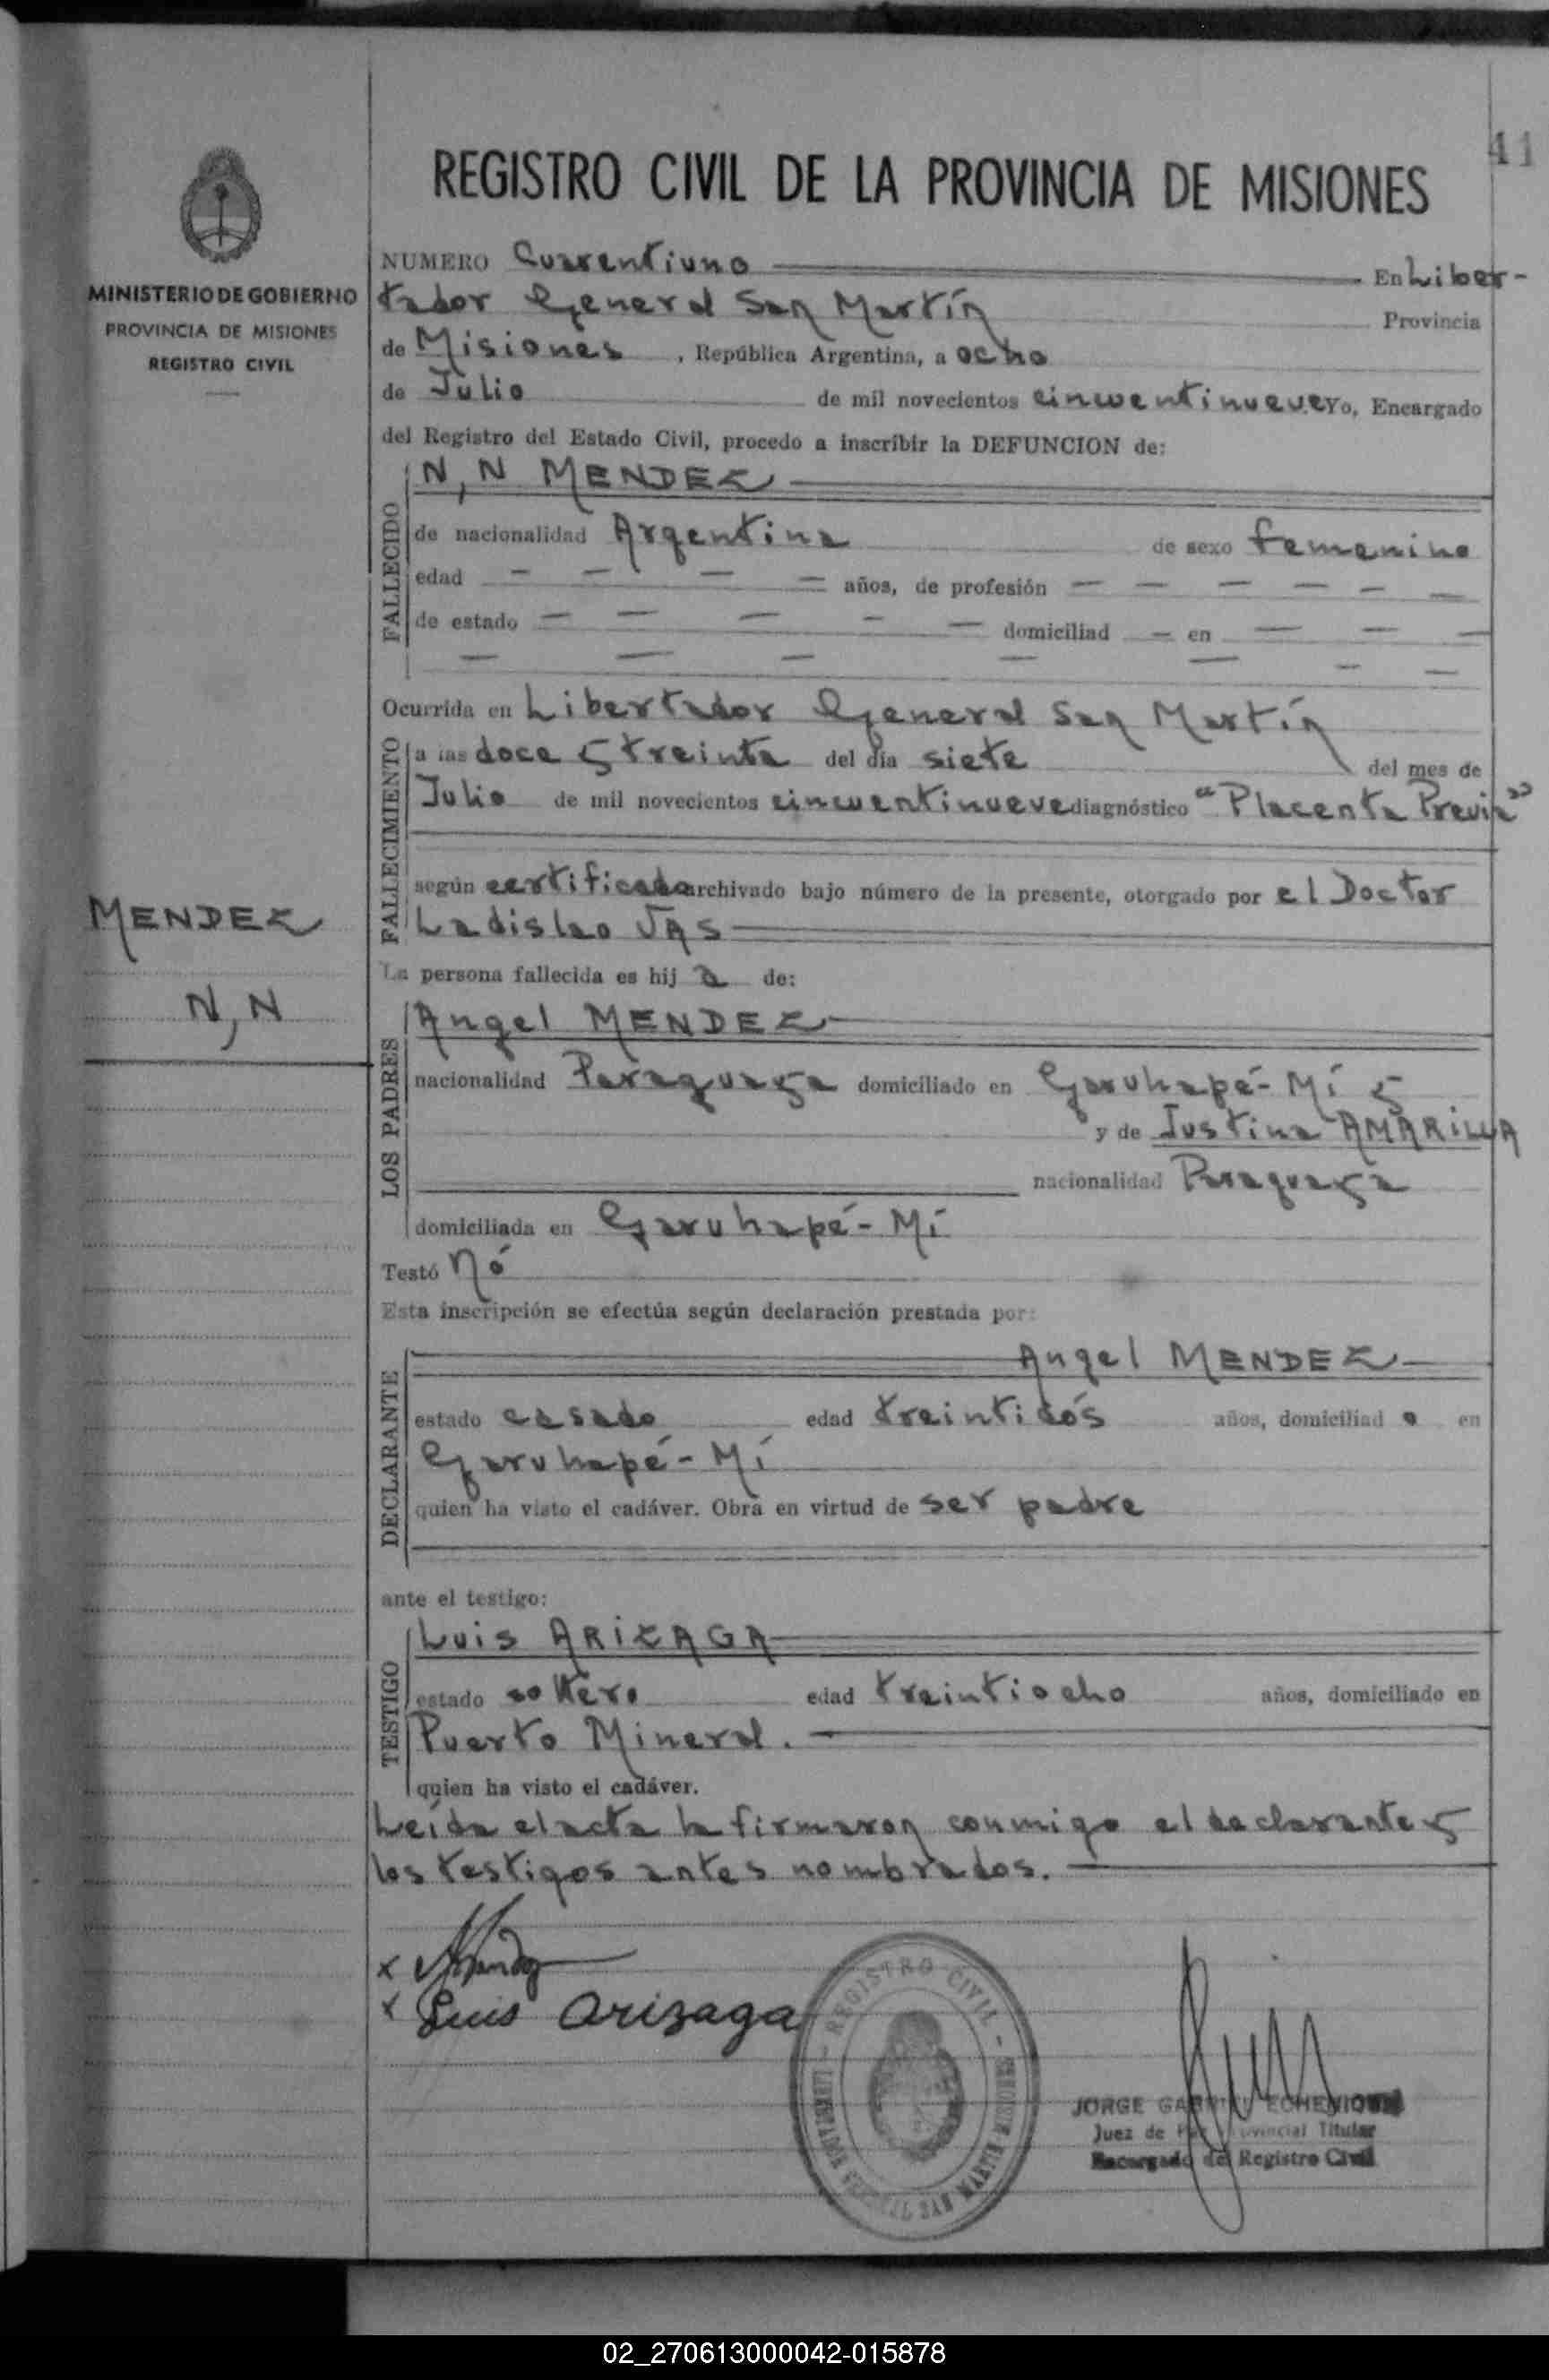 41
REGISTRO CIVIL DE LA PROVINCIA DE MISIONES
MINISTERIO DE GOBIERNO
PROVINCIA DE MISIONES
REGISTRO CIVIL
NUMERO Cuarentiuno En Liber-
tador General San Martín Provincia
de Misiones, República Argentina, a ocho
de Julio de mil novecientos cincuentinueve Yo, Encargado
del Registro del Estado Civil, procedo a inscribir la DEFUNCION de:
N, N MENDEZ
FALLECIDO
de nacionalidad Argentina de sexo femenino
edad — — — — años, de profesión — — — — — —
de estado — — — — — domiciliad — en — — —
— — — — — — —
Ocurrida en Libertador General San Martín
FALLECIMIENTO
a las doce y treinta del día siete del mes de
Julio de mil novecientos cincuentinueve diagnóstico "Placenta Previa"
según certificado archivado bajo número de la presente, otorgado por el Doctor
Ladislao JAS
MENDEZ
N, N
La persona fallecida es hij a de:
LOS PADRES
Angel MENDEZ
nacionalidad Paraguaya domiciliado en Garuhapé-Mí y
y de Justina AMARILLA
nacionalidad Paraguaya
domiciliada en Garuhapé-Mí
Testó Nó
Esta inscripción se efectúa según declaración prestada por:
DECLARANTE
Angel MENDEZ
estado casado edad treintidós años, domiciliad o en
Garuhapé-Mí
quien ha visto el cadáver. Obra en virtud de ser padre
ante el testigo:
TESTIGO
Luis ARIZAGA
estado soltero edad treintiocho años, domiciliado en
Puerto Mineral.
quien ha visto el cadáver.
Leída el acta la firmaron conmigo el declarante y
los testigos antes nombrados.
x
x Luis Arizaga
REGISTRO CIVIL - LIBERTADOR GENERAL SAN MARTIN
JORGE
Juez de Provincial Titular
Encargado del Registro Civil
02_270613000042-015878